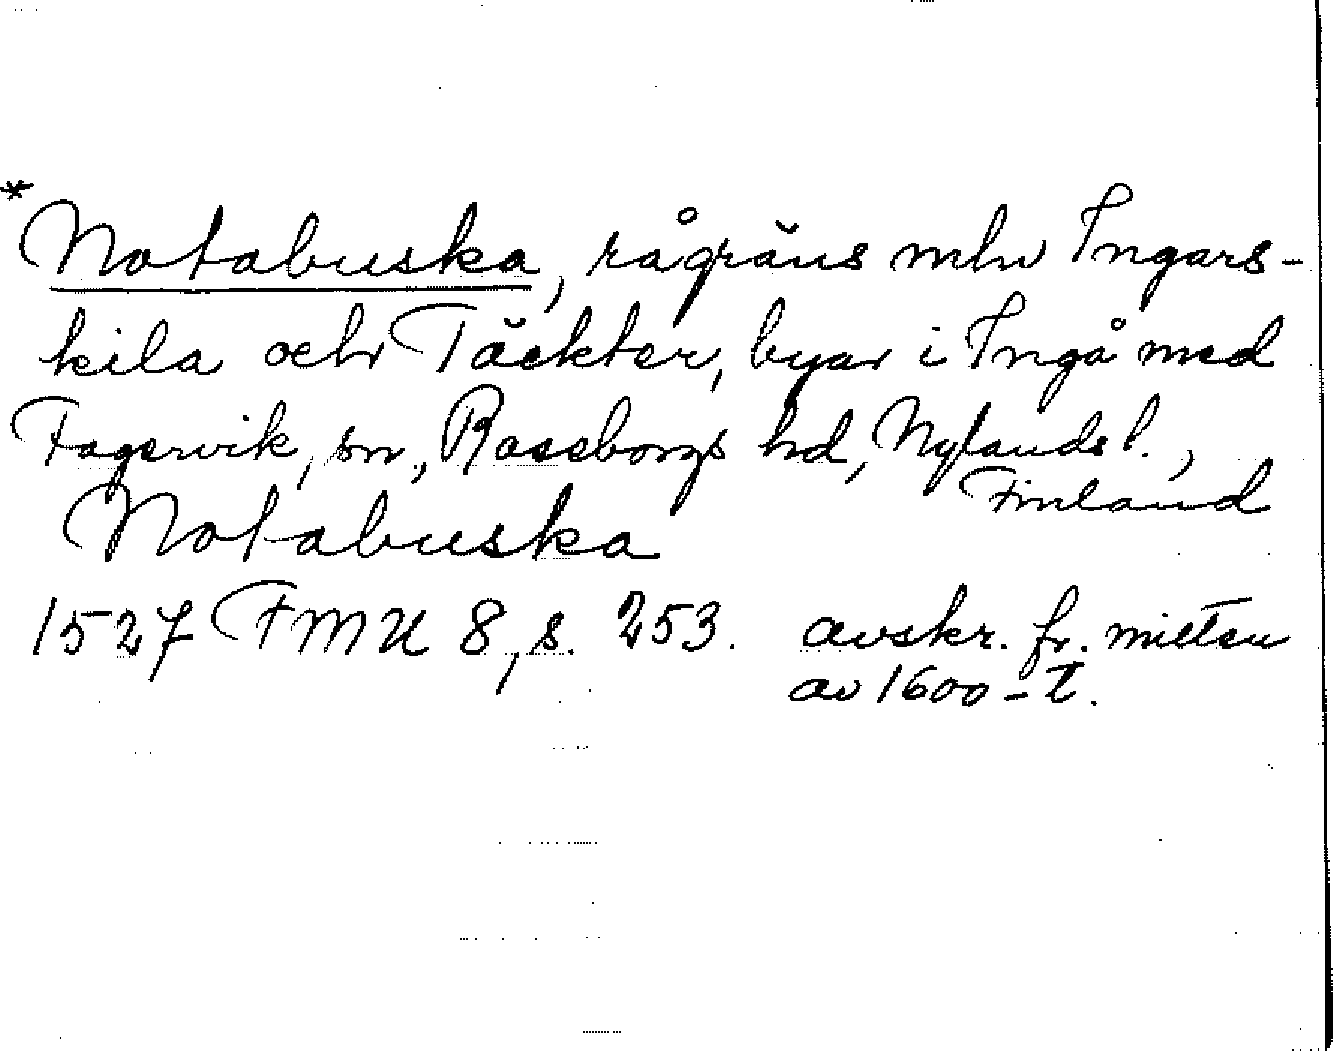 *
Notabuska, rågräns mln Ingars-
kila och Täckter, byar i Ingå med
Fagervik, sn, Raseborgs hd, Nylands l.,
Finland
Notabuska
1527 FMU 8, s. 253. avskr. fr. mitten
av 1600-t.